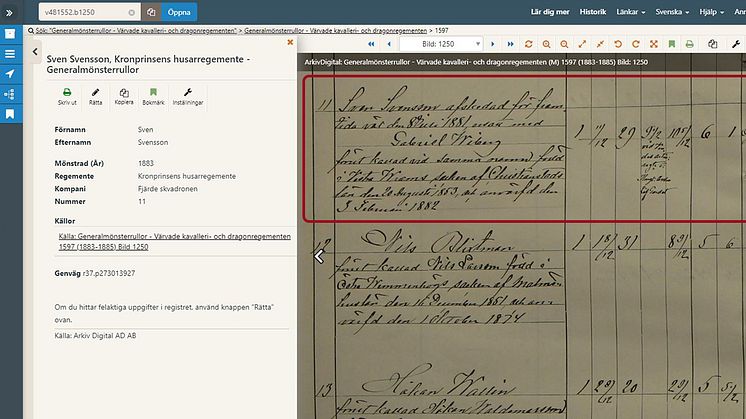 v481552.b1250
Öppna
Lär dig mer Historik Länkar Svenska Hjälp
Sök: "Generalmönsterrullor - Värvade kavalleri- och dragonregementen" > Generalmönsterrullor - Värvade kavalleri- och dragonregementen > 1597
Bild: 1250
ArkivDigital: Generalmönsterrullor - Värvade kavalleri- och dragonregementen (M) 1597 (1883-1885) Bild: 1250
Sven Svensson, Kronprinsens husarregemente -
Generalmönsterrullor
Skriv ut Rätta Kopiera Bokmärk Inställningar
Förnamn Sven
Efternamn Svensson
Mönstrad (År) 1883
Regemente Kronprinsens husarregemente
Kompani Fjärde skvadronen
Nummer 11
Källor
Källa: Generalmönsterrullor - Värvade kavalleri- och dragonregementen
1597 (1883-1885) Bild 1250
Genväg r37.p273013927
Om du hittar felaktiga uppgifter i registret, använd knappen "Rätta"
ovan.
Källa: Arkiv Digital AD AB
11 Sven Svensson afskedad för fram-
tida vät den 8 Juli 1881, utan med
Gabriel Wiberg 1 11/12 29 6
förut kallad vid samma namn född
i socken af Christianstads
län den 20 Augusti 1853, och antagen den
3 Februari 1882
12 Nils 1 18/12 31 5 6
förut kallad Nils Larsson född i
Östra Wemmenhögs socken af Malmö-
hus län den 16 December 1851 och an-
den 1 October 1874
13 Håkan Wallin 1 20 5
förut kallad Håkan